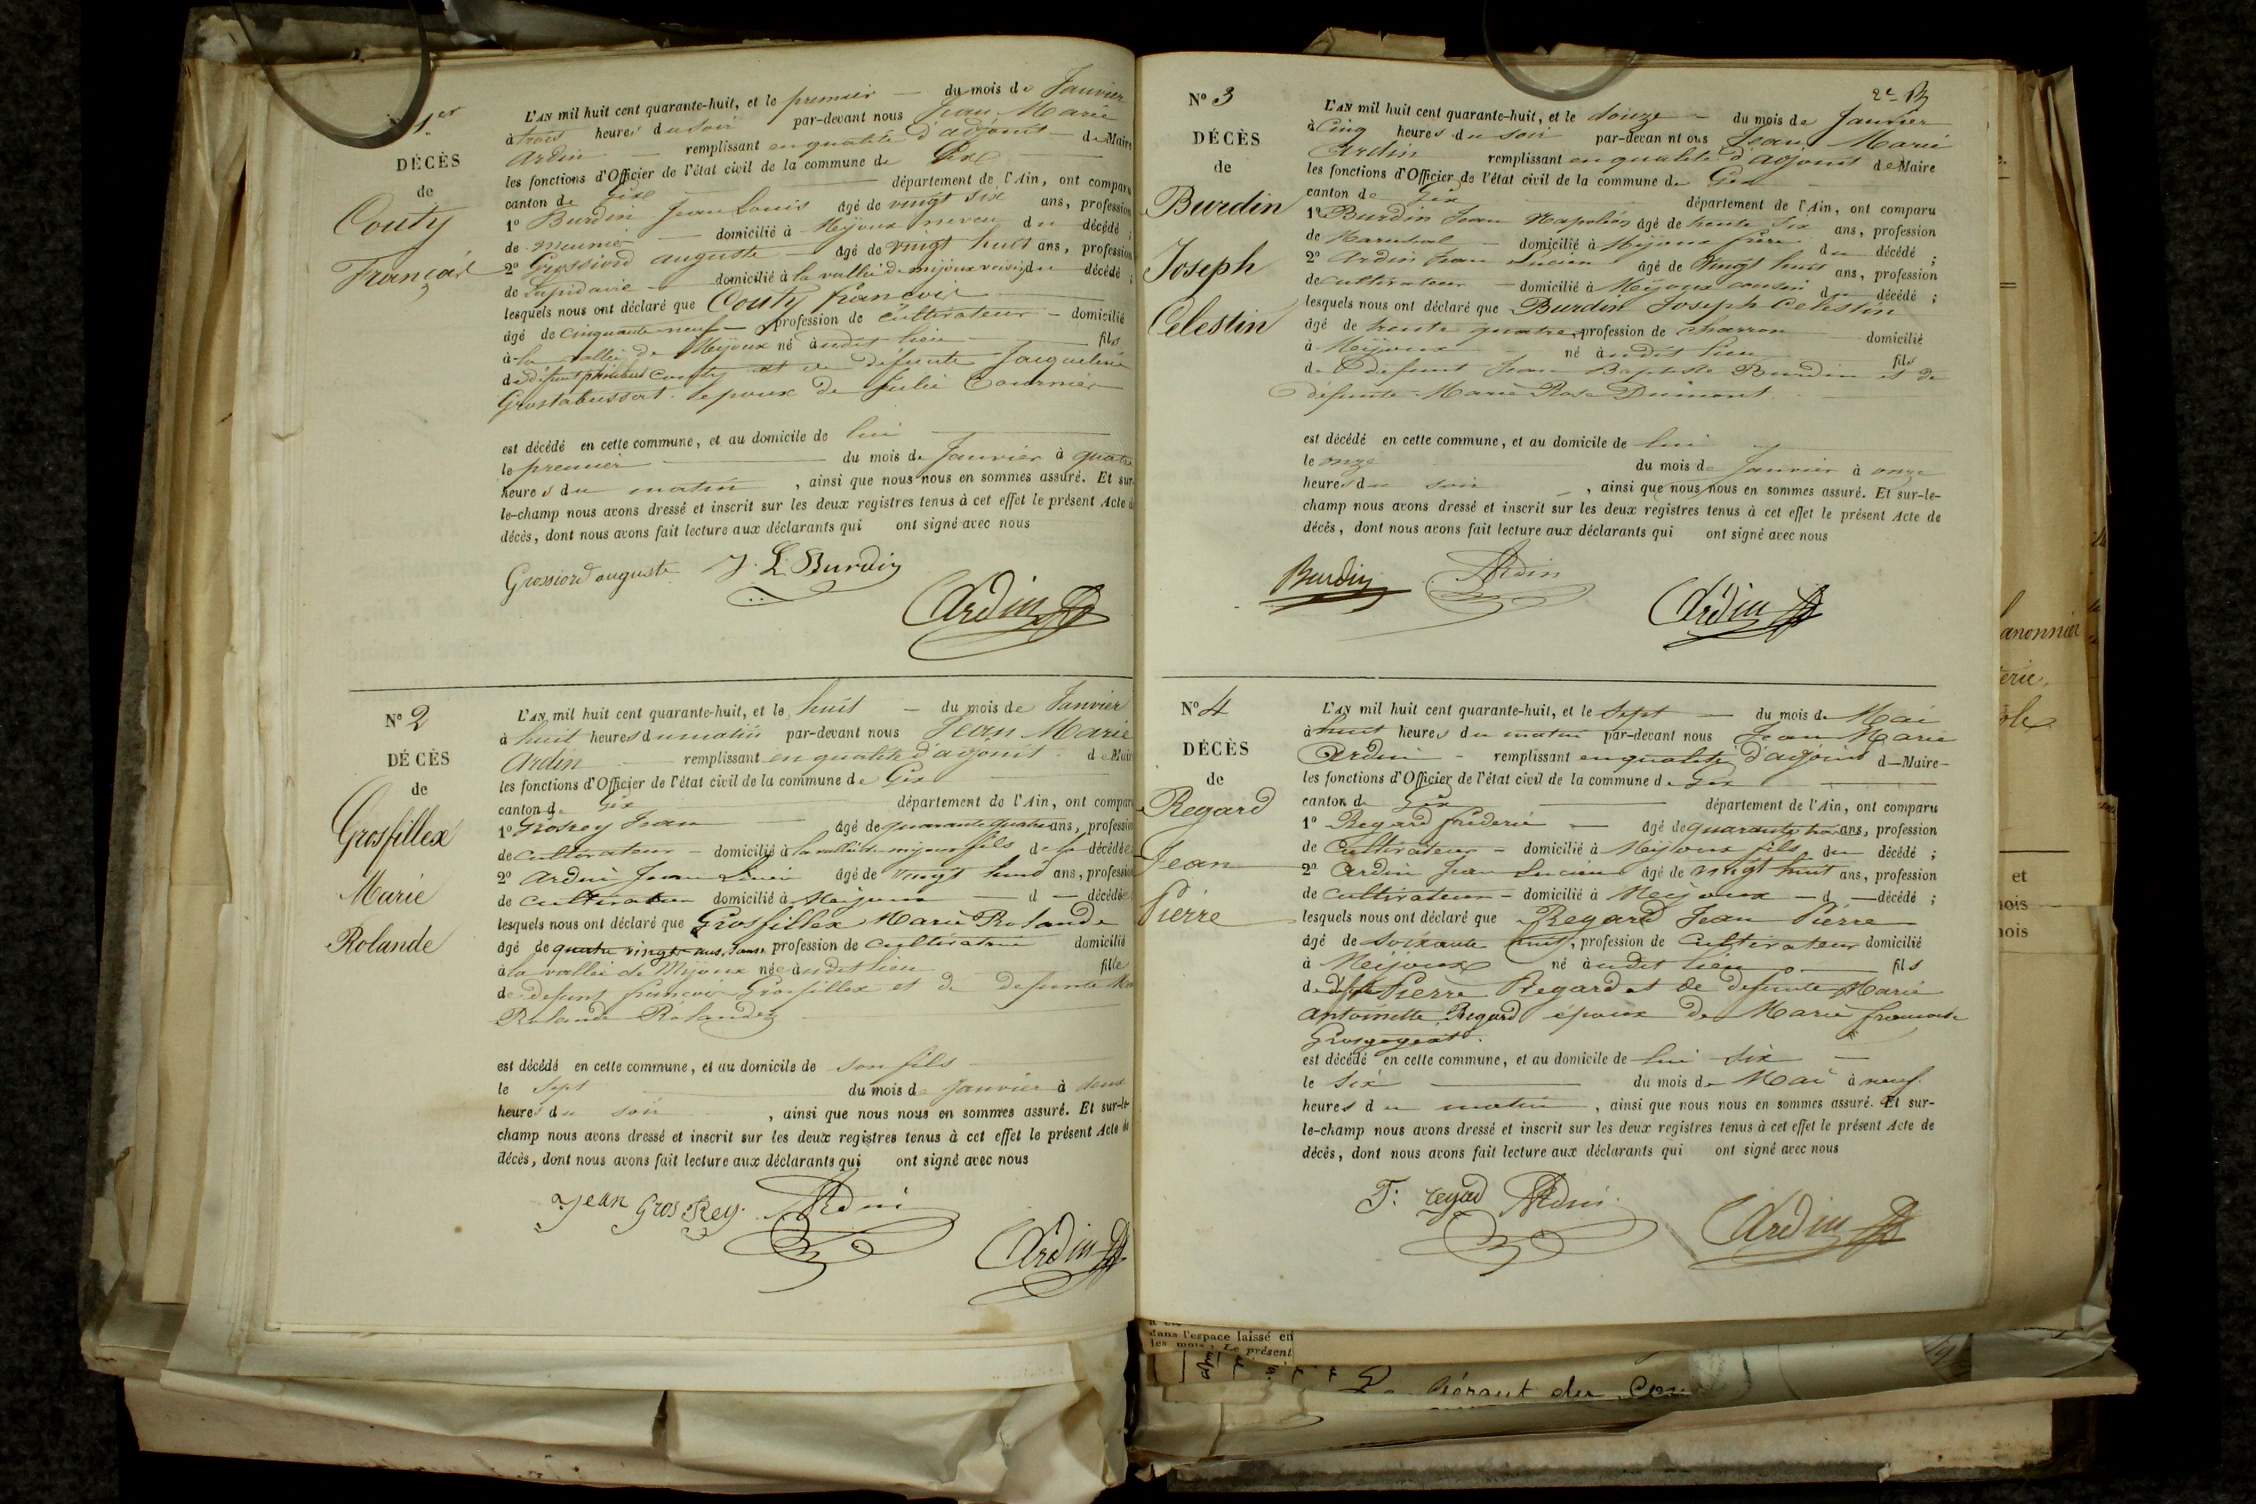 1er
DÉCÈS
de
Couty
François
L'AN mil huit cent quarante-huit, et le premier — du mois de Janvier
à trois heures du soir par-devant nous Jean Marie
Ardin — remplissant en qualité d'adjoint de Maire
les fonctions d'Officier de l'état civil de la commune de Gex
canton de Gex — département de l'Ain, ont comparu
1º Burdin Jean Louis âgé de vingt six ans, profession
de meunier — domicilié à Mijoux neveu du décédé ;
2º Grossiord auguste — âgé de vingt huit ans, profession
de Lapidaire — domicilié à la vallée de mijoux voisin du décédé ;
lesquels nous ont déclaré que Couty françois
âgé de cinquante neuf — profession de cultivateur — domicilié
à la vallée de Mijoux né àudit lieu — fils
de défunt Couty et de défunte Jacqueline
époux de Julie Tournier
est décédé en cette commune, et au domicile de lui
le premier — du mois de Janvier à quatre
heures du matin , ainsi que nous nous en sommes assuré. Et sur-
le-champ nous avons dressé et inscrit sur les deux registres tenus à cet effet le présent Acte de
décès, dont nous avons fait lecture aux déclarants qui ont signé avec nous
Grossiord auguste J. L. Burdin
Ardin
Nº 2
DÉCÈS
de
Grosfillex
Marie
Rolande
L'AN mil huit cent quarante-huit, et le huit — du mois de Janvier
à huit heures du matin par-devant nous Jean Marie
Ardin — remplissant en qualité d'adjoint de Maire
les fonctions d'Officier de l'état civil de la commune de Gex
canton de Gex — département de l'Ain, ont comparu
1º Grosrey Jean — âgé de quarante quatre ans, profession
de Cultivateur — domicilié à la vallée de mijoux fils de la décédée
2º Ardin Jean âgé de vingt huit ans, profession
de cultivateur domicilié à Meijoux — d — décédé
lesquels nous ont déclaré que Grosfillex Marie Rolande
âgé de quatre vingt ans, profession de cultivatrice domicilié
à la vallée de Mijoux née àudit lieu fille
de defunt françois Grosfillex et de defunte
Rolande
est décédé en cette commune, et au domicile de son fils
le sept du mois de janvier à deux
heures du soir , ainsi que nous nous en sommes assuré. Et sur-le-
champ nous avons dressé et inscrit sur les deux registres tenus à cet effet le présent Acte de
décès, dont nous avons fait lecture aux déclarants qui ont signé avec nous
Jean Gros Rey. Ardin
Ardin
2e
Nº 3
DÉCÈS
de
Burdin
Joseph
Celestin
L'AN mil huit cent quarante-huit, et le douze — du mois de Janvier
à Cinq heures du soir par-devant nous Jean Marie
Ardin remplissant en qualité d'adjoint de Maire
les fonctions d'Officier de l'état civil de la commune de Gex
canton de Gex département de l'Ain, ont comparu
1º Burdin Jean Napoléon âgé de trente six ans, profession
de Marechal — domicilié à Mijoux frère du décédé ;
2º Ardin Jean Lucien âgé de vingt huit ans, profession
de cultivateur — domicilié à Mijoux cousin du décédé ;
lesquels nous ont déclaré que Burdin Joseph Celestin
âgé de trente quatre, profession de charron domicilié
à Mijoux né àudit lieu fils
de defunt Jean Baptiste Burdin et de
défunte Marie Rose Dumont
est décédé en cette commune, et au domicile de lui
le onze du mois de Janvier à onze
heures du soir , ainsi que nous nous en sommes assuré. Et sur-le-
champ nous avons dressé et inscrit sur les deux registres tenus à cet effet le présent Acte de
décès, dont nous avons fait lecture aux déclarants qui ont signé avec nous
Burdin Ardin
Ardin
Nº 4
DÉCÈS
de
Regard
Jean
Pierre
L'AN mil huit cent quarante-huit, et le Sept — du mois de Mai
à huit heures du matin par-devant nous Jean Marie
Ardin — remplissant en qualité d'adjoint d— Maire—
les fonctions d'Officier de l'état civil de la commune de Gex
canton de Gex — département de l'Ain, ont comparu
1º Regard fréderic — âgé de quarante trois ans, profession
de Cultivateur — domicilié à Mijoux fils du décédé ;
2º Ardin Jean Lucien âgé de vingt huit ans, profession
de cultivateur — domicilié à Meijoux — d — décédé ;
lesquels nous ont déclaré que Regard Jean Pierre
âgé de soixante huit, profession de Cultivateur domicilié
à Meijoux né àudit lieu — fils
de Pierre Regard et de defunte Marie
Antoinette Regard époux de Marie françoise
Grosgogeat.
est décédé en cette commune, et au domicile de lui six —
le six — du mois de Mai à neuf
heures du matin , ainsi que nous nous en sommes assuré. Et sur-
le-champ nous avons dressé et inscrit sur les deux registres tenus à cet effet le présent Acte de
décès, dont nous avons fait lecture aux déclarants qui ont signé avec nous
F: regad Ardin
Ardin
anonnier
et
nois
nois
dans l'espace laissé en
les mots : Le présent